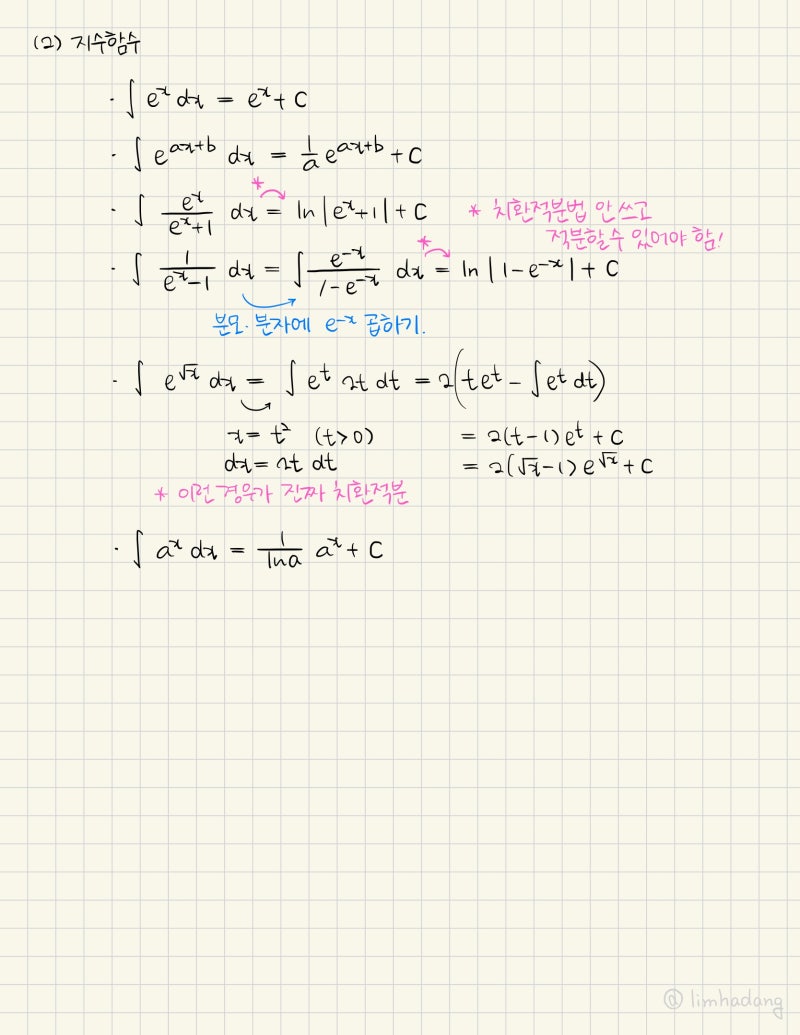 (2) 지수함수
· ∫ eˣ dx = eˣ + C
· ∫ e^(ax+b) dx = 1/a e^(ax+b) + C
· ∫ eˣ/(eˣ+1) dx *= ln|eˣ+1| + C * 치환적분법 안 쓰고
적분할 수 있어야 함!
· ∫ 1/(eˣ-1) dx = ∫ e^(-x)/(1-e^(-x)) dx *= ln|1-e^(-x)| + C
분모·분자에 e^(-x) 곱하기.
· ∫ e^(√x) dx = ∫ eᵗ 2t dt = 2(teᵗ - ∫eᵗ dt)
x = t² (t>0) = 2(t-1)eᵗ + C
dx = 2t dt = 2(√x-1)e^(√x) + C
* 이런 경우가 진짜 치환적분
· ∫ aˣ dx = 1/(ln a) aˣ + C
@limhadang